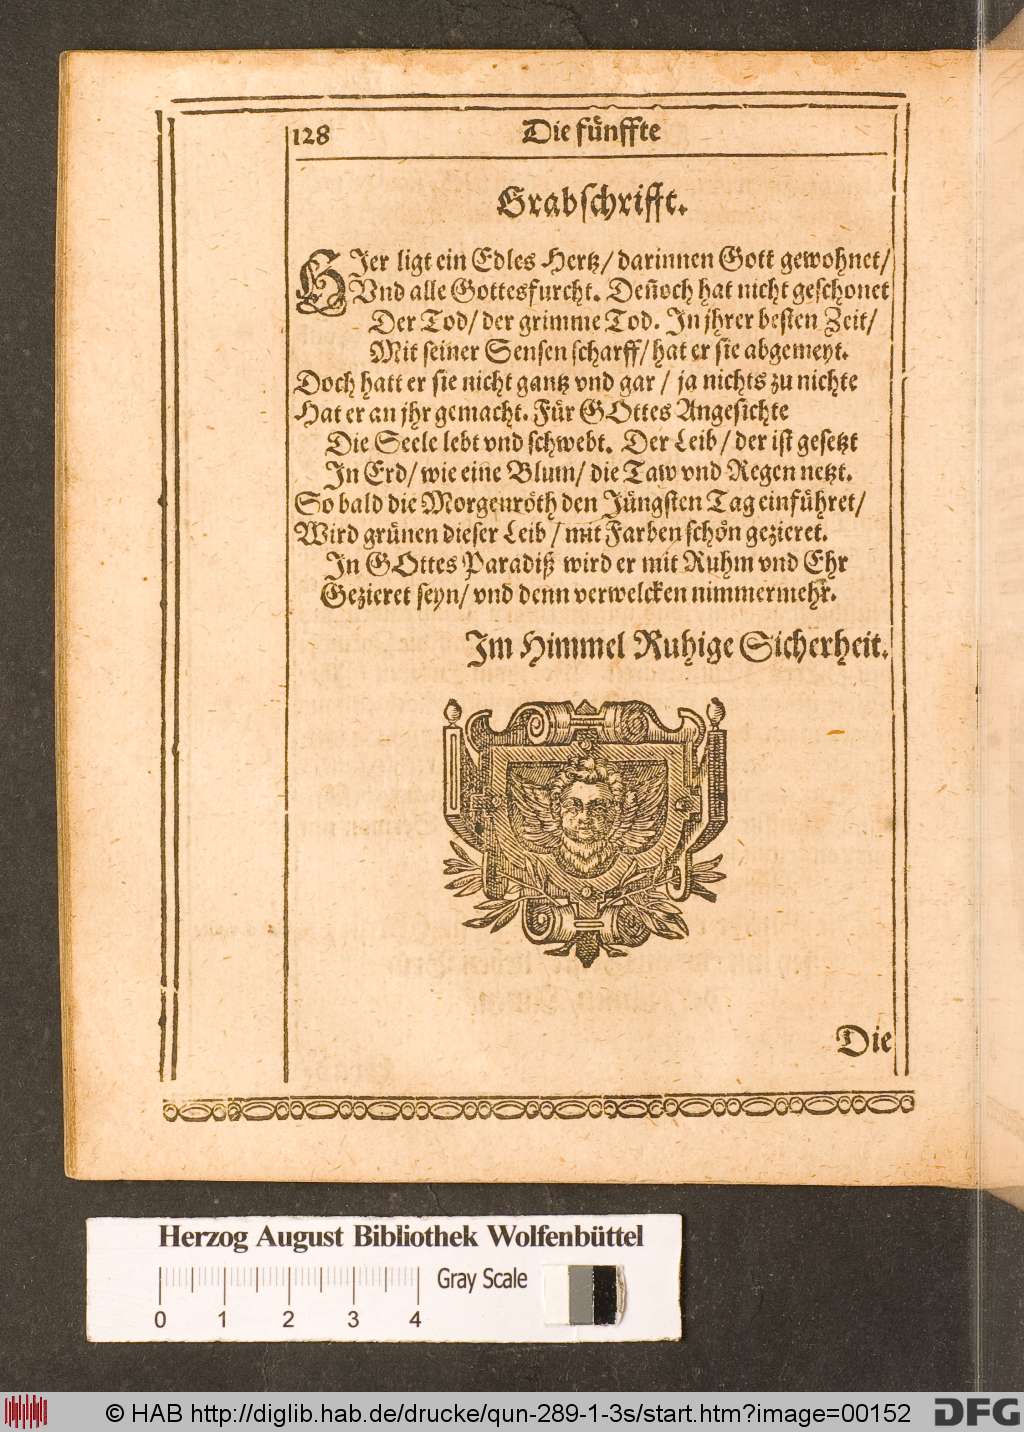 128 Die fuͤnffte
Grabschrifft.
HJer ligt ein Edles Hertz / darinnen Gott gewohnet /
Vnd alle Gottesfurcht. Deñoch hat nicht geschonet
Der Tod / der grimme Tod. Jn jhrer besten Zeit /
Mit seiner Sensen scharff / hat er sie abgemeyt.
Doch hatt er sie nicht gantz vnd gar / ja nichts zu nichte
Hat er an jhr gemacht. Fuͤr GOttes Angesichte
Die Seele lebt vnd schwebt. Der Leib / der ist gesetzt
Jn Erd / wie eine Blum / die Taw vnd Regen netzt.
So bald die Morgenroͤth den Juͤngsten Tag einfuͤhret /
Wird gruͤnen dieser Leib / mit Farben schoͤn gezieret.
Jn GOttes Paradiß wird er mit Ruhm vnd Ehr
Gezieret seyn / vnd denn verwelcken nimmermehr.
Jm Himmel Ruhige Sicherheit.
Die
Herzog August Bibliothek Wolfenbüttel
Gray Scale
0 1 2 3 4
© HAB http://diglib.hab.de/drucke/qun-289-1-3s/start.htm?image=00152 DFG